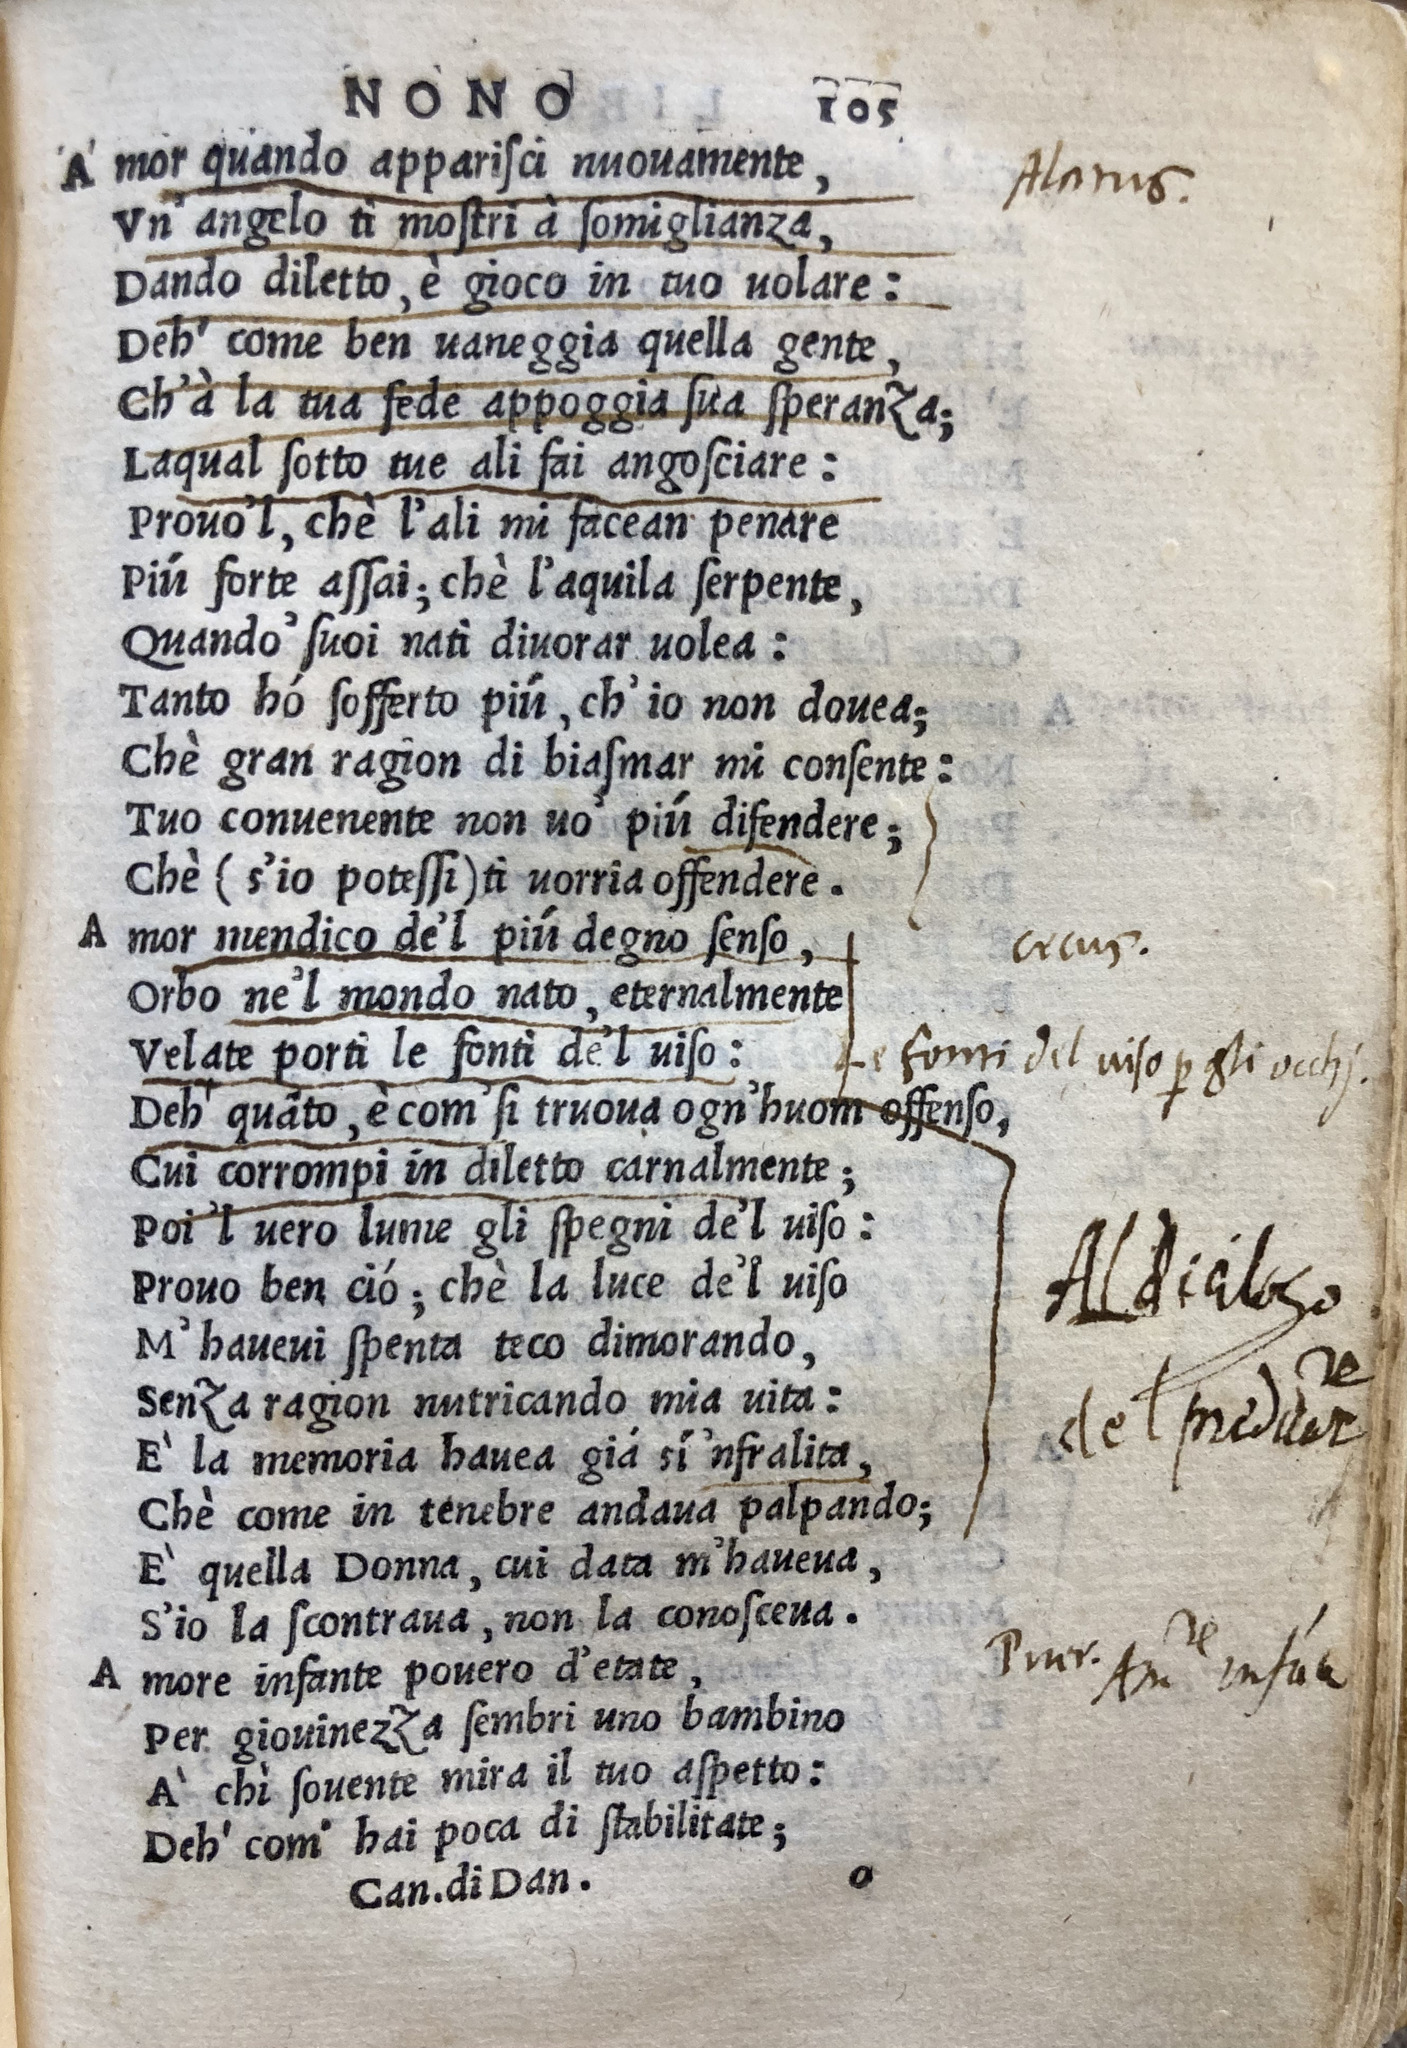 NONO 105
Amor quando appariſci nuouamente,
Vn' angelo ti moſtri à ſomiglianza,
Dando diletto, è gioco in tuo uolare:
Deh' come ben uaneggia quella gente,
Ch'à la tua fede appoggia ſua ſperanza;
Laqual ſotto tue ali fai angoſciare:
Prouo'l, chè l'ali mi facean penare
Piú forte aſſai; chè l'aquila ſerpente,
Quando' ſuoi nati diuorar uolea:
Tanto hó ſofferto piú, ch'io non douea;
Chè gran ragion di biaſmar mi conſente:
Tuo conuenente non uo' piú difendere;
Chè (s'io poteſſi) ti uorria offendere.
Amor mendico de'l piú degno ſenſo,
Orbo ne'l mondo nato, eternalmente
Velate porti le fonti de'l uiſo:
Deh' quãto, è com' ſi truoua ogn'huom offenſo,
Cui corrompi in diletto carnalmente;
Poi 'l uero lume gli ſpegni de'l uiſo:
Prouo ben ció; chè la luce de'l uiſo
M' haueui ſpenta teco dimorando,
Senza ragion nutricando mia uita:
E' la memoria hauea giá sí 'nfralita,
Chè come in tenebre andaua palpando;
E' quella Donna, cui data m'haueua,
S'io la ſcontraua, non la conoſceua.
Amore infante pouero d'etate,
Per giouinezza ſembri uno bambino
A' chì ſouente mira il tuo aſpetto:
Deh' com' hai poca di ſtabilitate;
Can. di Dan. o
Alatus.
cecus.
Le fonti del uiso p gli occhj.
Al dialogo
del
Puer. Am.re